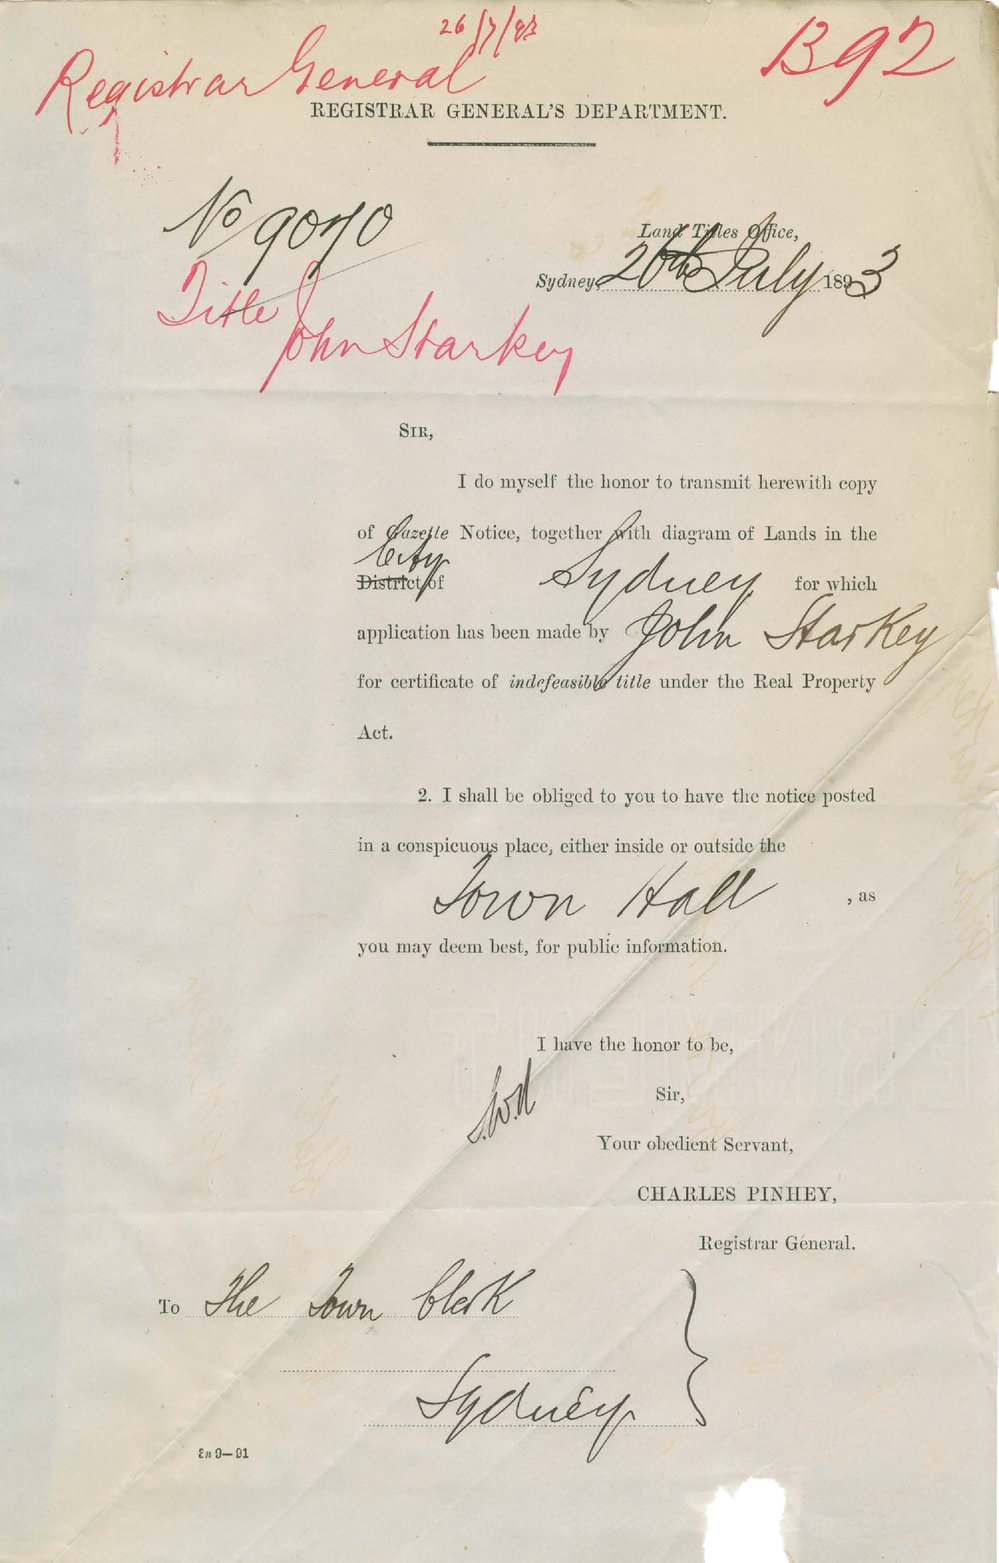 26/7/93
Registrar General
B92
REGISTRAR GENERAL'S DEPARTMENT.
No 9070
Land Titles Office,
Sydney, 26th July 1893
Title
John Starkey
SIR,
I do myself the honor to transmit herewith copy
of Gazette Notice, together with diagram of Lands in the
City
District of Sydney for which
application has been made by John Starkey
for certificate of indefeasible title under the Real Property
Act.
2. I shall be obliged to you to have the notice posted
in a conspicuous place, either inside or outside the
Town Hall , as
you may deem best, for public information.
I have the honor to be,
Sir,
Your obedient Servant,
CHARLES PINHEY,
Registrar General.
To The Town Clerk
Sydney
9—91